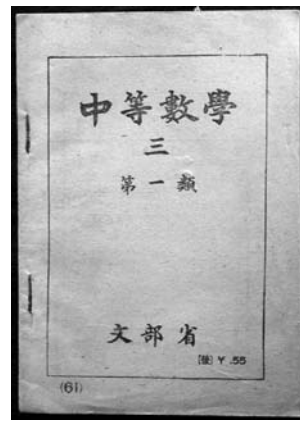 中等數學
三
第一類
文部省
¥ .55
(61)